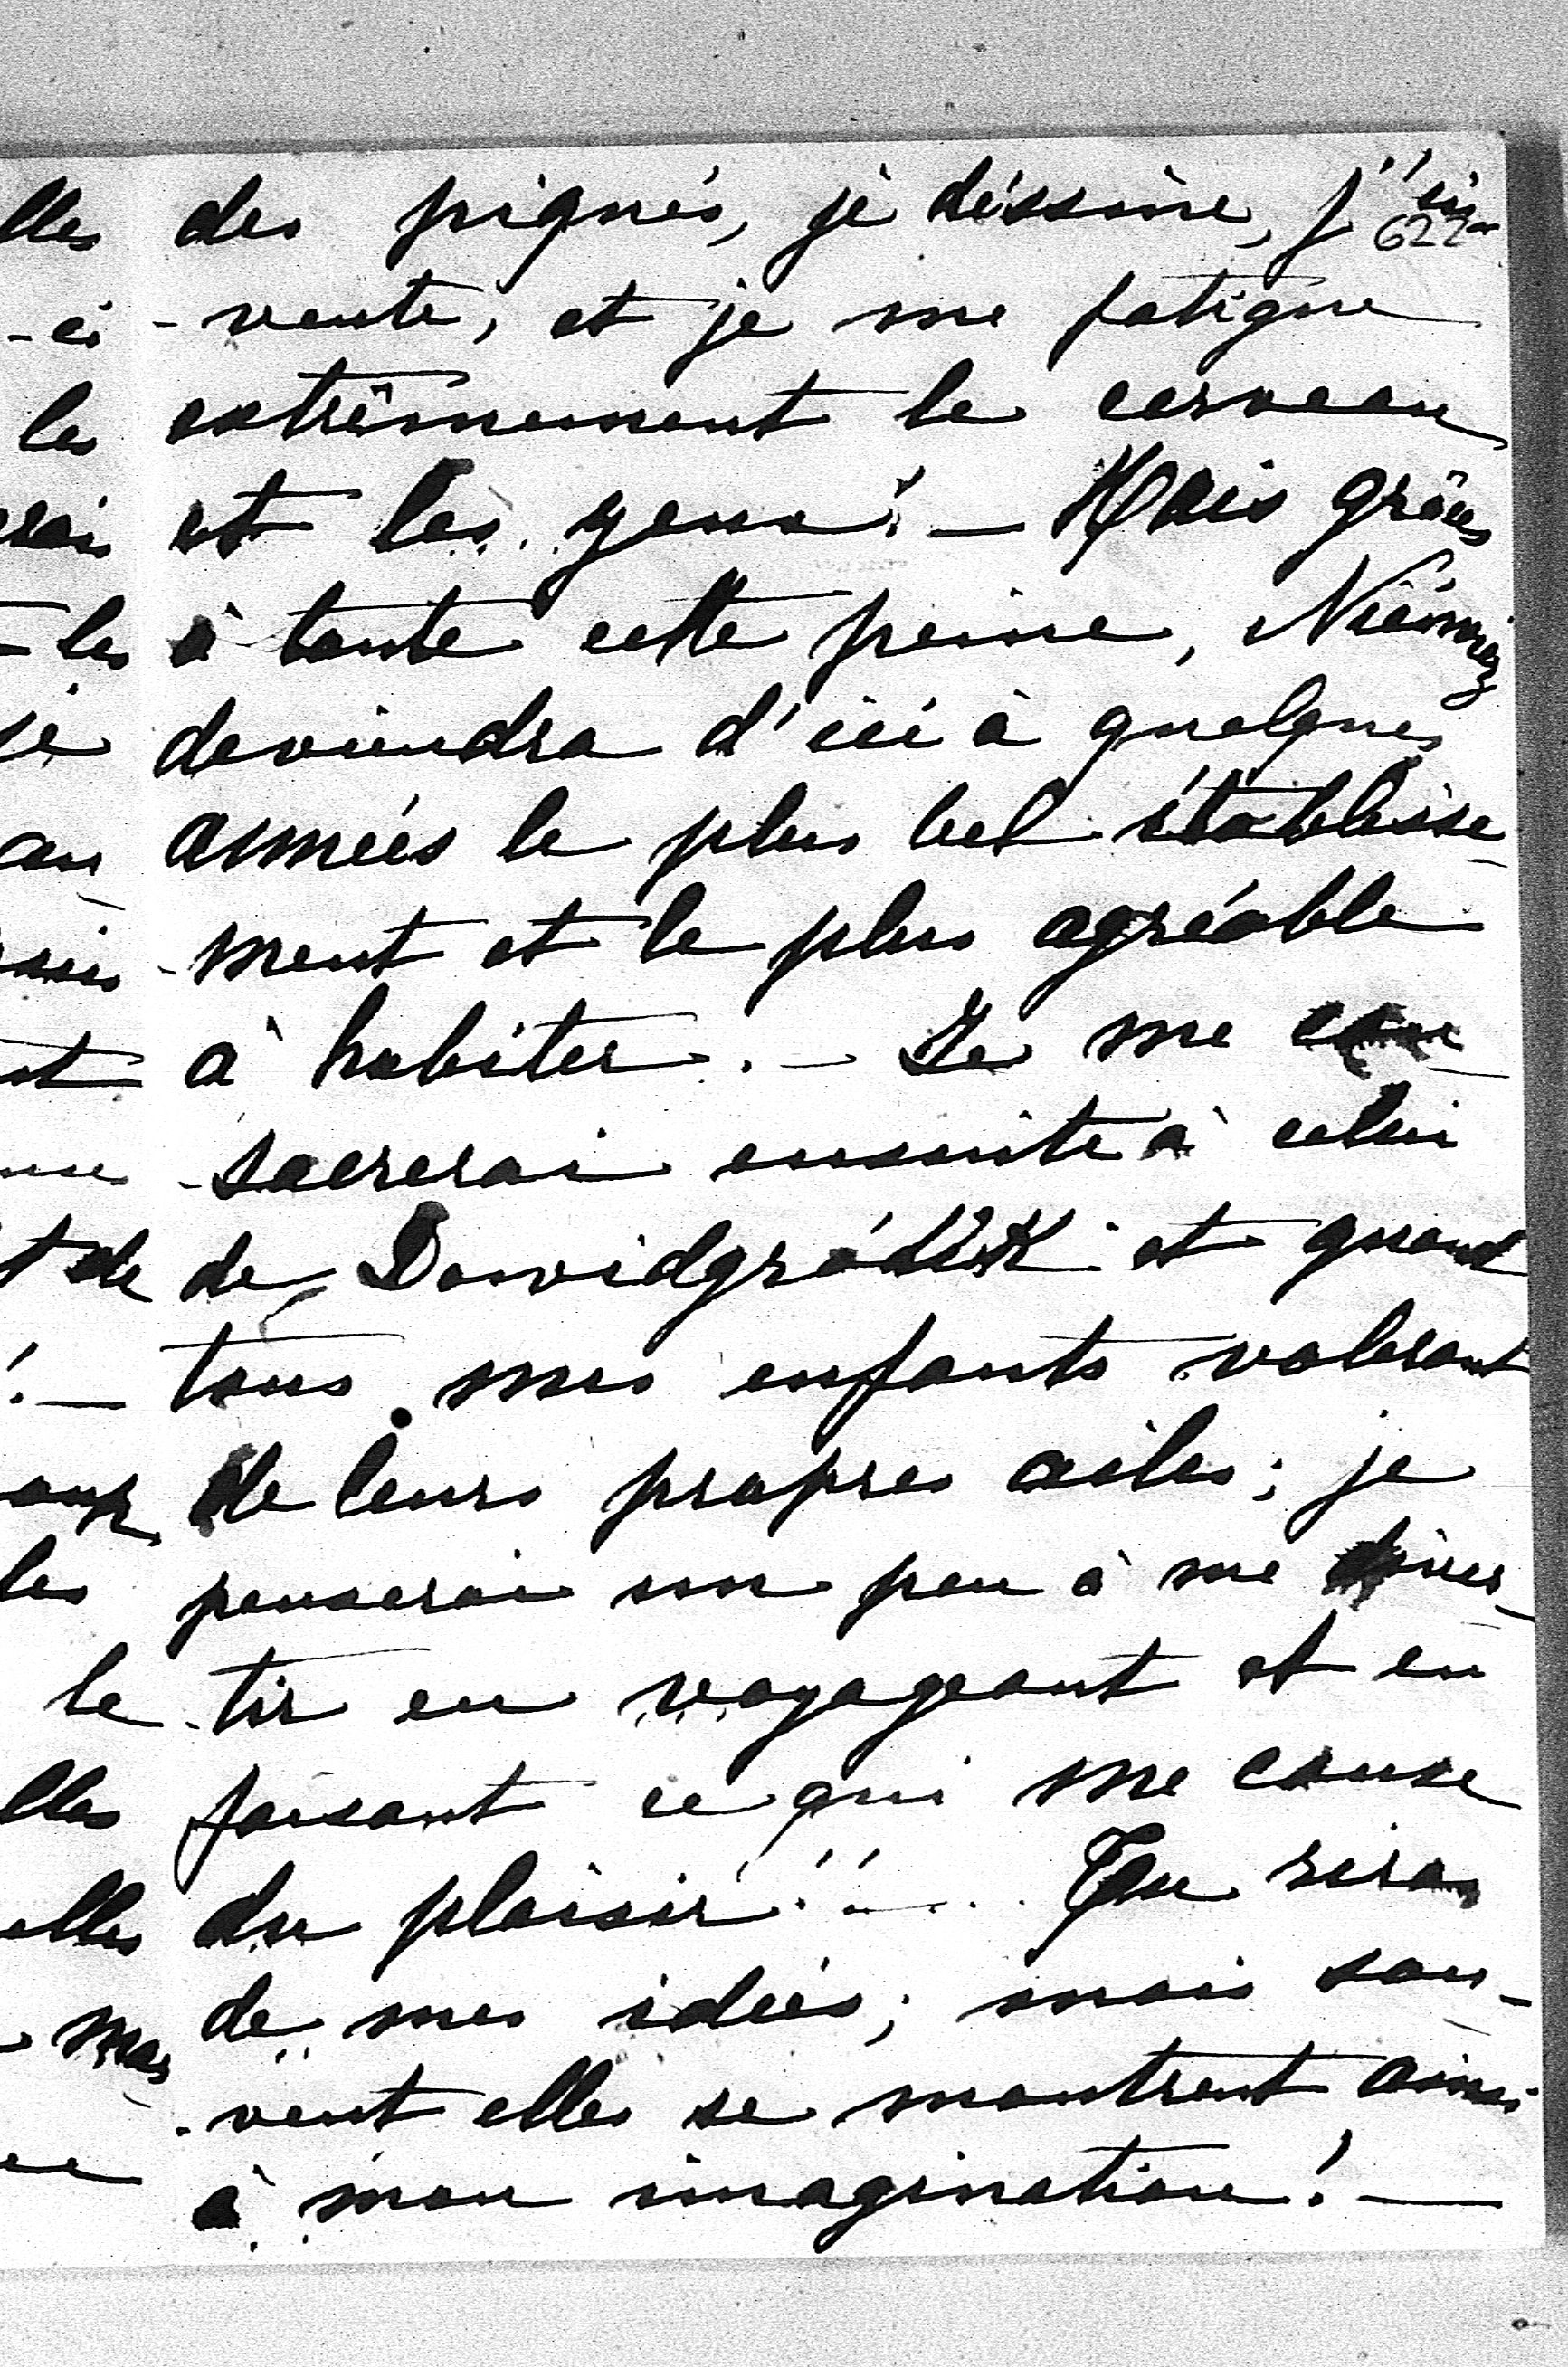 des piqués, je déssine, j'in
622
- vente, et je me fatigue
extrêmement le cerveau
et les yeux! — Mais grâces
à toute cette peine,
deviendra d'ici à quelques
années le plus bel établisse-
- ment et le plus agréable
à habiter. — Je me con-
- sacrerai ensuite à celui
de Dawidgródek et quand
tous mes enfants voleront
de leurs propres ailes; je
penserai un peu à me diver-
- tir en voyageant et en
faisant ce qui me cause
du plaisir!! — .. Tu riras
de mes idées; mais sou-
- vent elles se montrent ainsi
à mon imagination! —